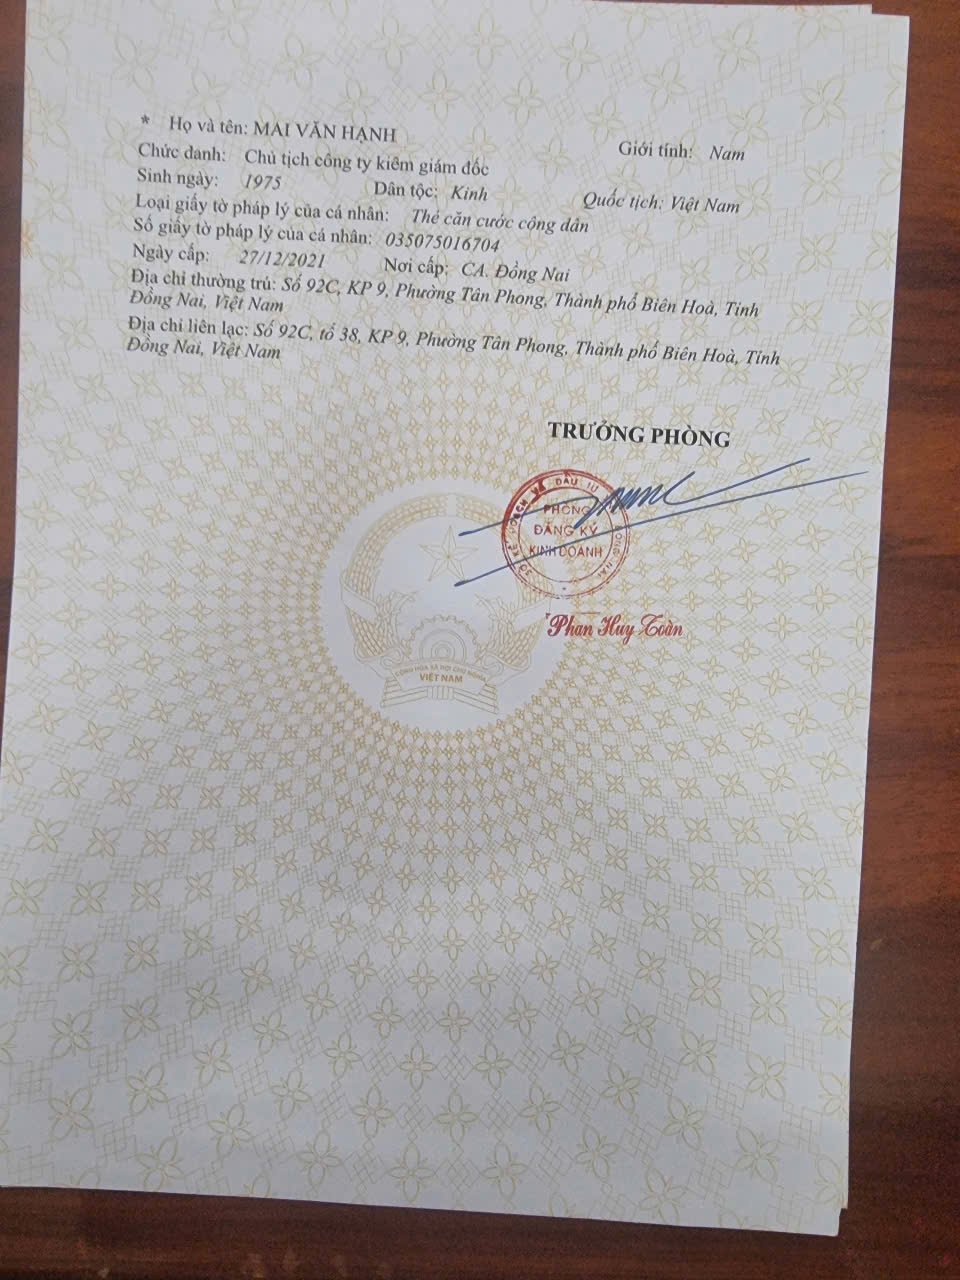 * Họ và tên: MAI VĂN HẠNH Giới tính: Nam
Chức danh: Chủ tịch công ty kiêm giám đốc
Sinh ngày: 1975 Dân tộc: Kinh Quốc tịch: Việt Nam
Loại giấy tờ pháp lý của cá nhân: Thẻ căn cước công dân
Số giấy tờ pháp lý của cá nhân: 035075016704
Ngày cấp: 27/12/2021 Nơi cấp: CA. Đồng Nai
Địa chỉ thường trú: Số 92C, KP 9, Phường Tân Phong, Thành phố Biên Hoà, Tỉnh
Đồng Nai, Việt Nam
Địa chỉ liên lạc: Số 92C, tổ 38, KP 9, Phường Tân Phong, Thành phố Biên Hoà, Tỉnh
Đồng Nai, Việt Nam
TRƯỞNG PHÒNG
SỞ KẾ HOẠCH VÀ ĐẦU TƯ ĐỒNG NAI
PHÒNG
ĐĂNG KÝ
KINH DOANH
Phan Huy Toàn
CỘNG HÒA XÃ HỘI CHỦ NGHĨA
VIỆT NAM